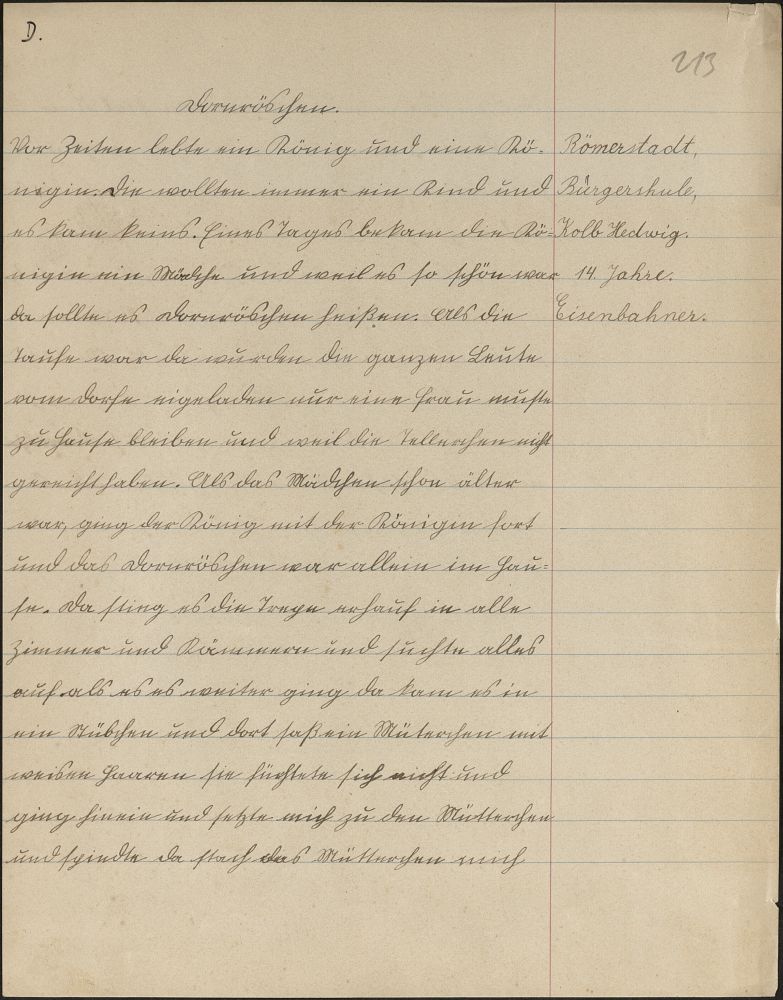 D.
213
Dornröschen.
Vor Zeiten lebte ein König und eine Kö-
nigin. Die wollten immer ein Kind und
es kam keins. Eines Tages bekam die Kö-
nigin ein Mädche und weil es so schön war
da sollte es Dornröschen heißen. Als die
Taufe war da wurden die ganzen Leute
vom Dorfe eigeladen nur eine Frau mußte
zu Hause bleiben und weil die Tellerchen nicht
gereicht haben. Als das Mädchen schon älter
war, ging der König mit der Königin fort
und das Dornröschen war allein im Hau-
se. Da stieg es die Trepe erhauf in alle
Zimmer und Kämmern und suchte alles
auf als es es weiter ging da kam es in
ein Stübchen und dort saß ein Müterchen mit
weisen Haaren sie fürchtete sich nicht und
ging hinein und setzte mich zu den Mütterchen
und spindte da stach das Mütterchen mich
Römerstadt,
Bürgershule,
Kolb Hedwig.
14. Jahre.
Eisenbahner.